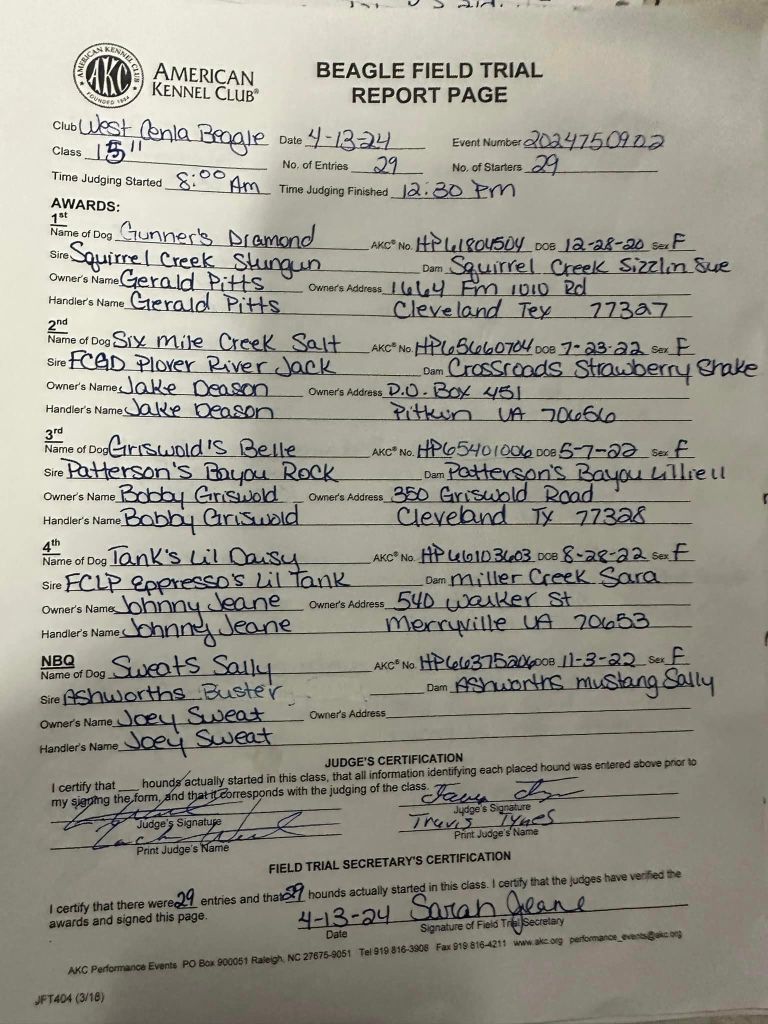 AMERICAN KENNEL CLUB
AKC
FOUNDED 1884
AMERICAN
KENNEL CLUB®
BEAGLE FIELD TRIAL
REPORT PAGE
Club West Cenla Beagle Date 4-13-24 Event Number 2024750902
Class 15" No. of Entries 29 No. of Starters 29
Time Judging Started 8:00 Am Time Judging Finished 12:30 Pm
AWARDS:
1st
Name of Dog Gunner's Diamond AKC® No. HP61804504 DOB 12-28-20 Sex F
Sire Squirrel Creek Stungun Dam Squirrel Creek Sizzlin Sue
Owner's Name Gerald Pitts Owner's Address 1664 Fm 1010 Rd
Handler's Name Gerald Pitts Cleveland Tex 77327
2nd
Name of Dog Six Mile Creek Salt AKC® No. HP65660704 DOB 7-23-22 Sex F
Sire FCGD Plover River Jack Dam Crossroads Strawberry Shake
Owner's Name Jake Deason Owner's Address P.O. Box 451
Handler's Name Jake Deason Pitkin LA 70656
3rd
Name of Dog Griswold's Belle AKC® No. HP65401006 DOB 5-7-22 Sex F
Sire Patterson's Bayou Rock Dam Patterson's Bayou Lillie II
Owner's Name Bobby Griswold Owner's Address 350 Griswold Road
Handler's Name Bobby Griswold Cleveland Tx 77328
4th
Name of Dog Tank's Lil Daisy AKC® No. HP66103603 DOB 8-28-22 Sex F
Sire FCLP Eppresso's Lil Tank Dam Miller Creek Sara
Owner's Name Johnny Jeane Owner's Address 540 Walker St
Handler's Name Johnny Jeane Merryville LA 70653
NBQ
Name of Dog Sweats Sally AKC® No. HP66375206 DOB 11-3-22 Sex F
Sire Ashworths Buster Dam Ashworths mustang Sally
Owner's Name Joey Sweat Owner's Address
Handler's Name Joey Sweat
JUDGE'S CERTIFICATION
I certify that ___ hounds actually started in this class, that all information identifying each placed hound was entered above prior to
my signing the form, and that it corresponds with the judging of the class.
Judge's Signature Judge's Signature
Zach Travis Tynes
Print Judge's Name Print Judge's Name
FIELD TRIAL SECRETARY'S CERTIFICATION
I certify that there were 29 entries and that 29 hounds actually started in this class. I certify that the judges have verified the
awards and signed this page.
4-13-24 Sarah Jeane
Date Signature of Field Trial Secretary
AKC Performance Events PO Box 900051 Raleigh, NC 27675-9051 Tel 919 816-3908 Fax 919 816-4211 www.akc.org performance_events@akc.org
JFT404 (3/18)